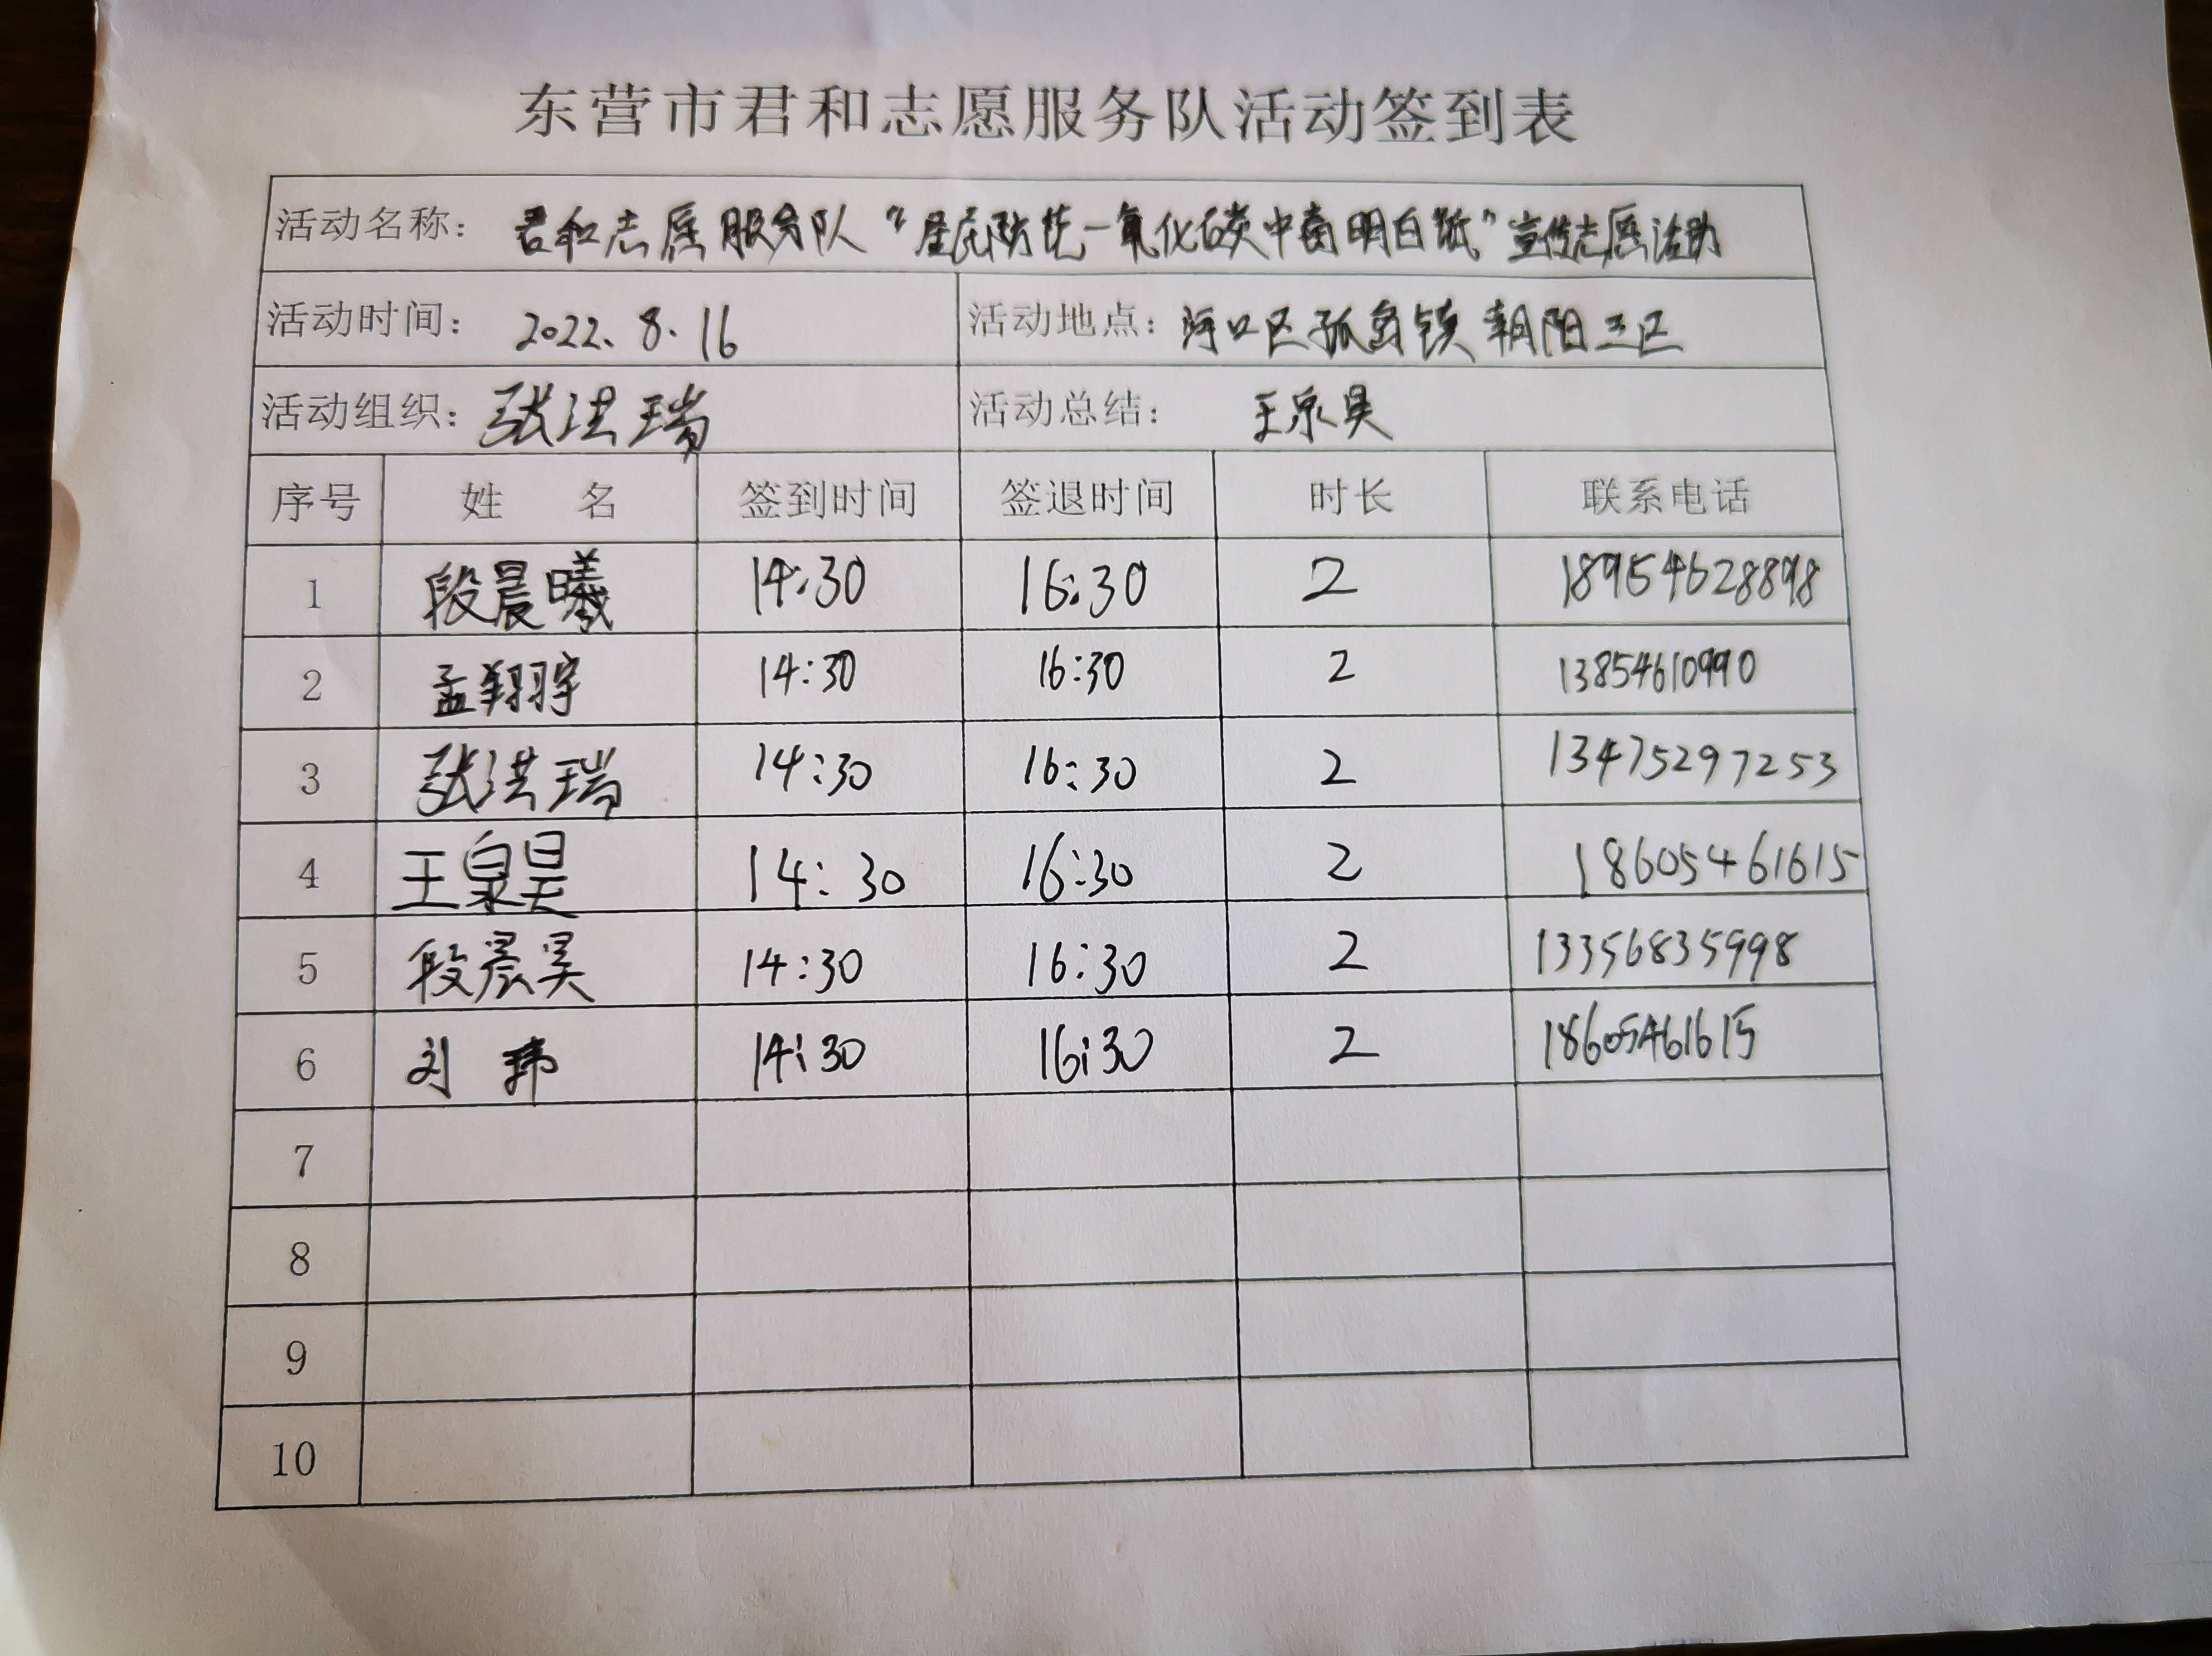 东营市君和志愿服务队活动签到表
活动名称： 君和志愿服务队“居民防范一氧化碳中毒明白纸”宣传志愿活动
活动时间： 2022.8.16 活动地点：河口区孤岛镇朝阳三区
活动组织：张洪瑞 活动总结： 王泉昊
序号 姓 名 签到时间 签退时间 时长 联系电话
1 段晨曦 14:30 16:30 2 18954628898
2 孟翔宇 14:30 16:30 2 13854610990
3 张洪瑞 14:30 16:30 2 13475297253
4 王泉昊 14:30 16:30 2 18605461615
5 段晨昊 14:30 16:30 2 13356835998
6 刘玮 14:30 16:30 2 18605461615
7
8
9
10